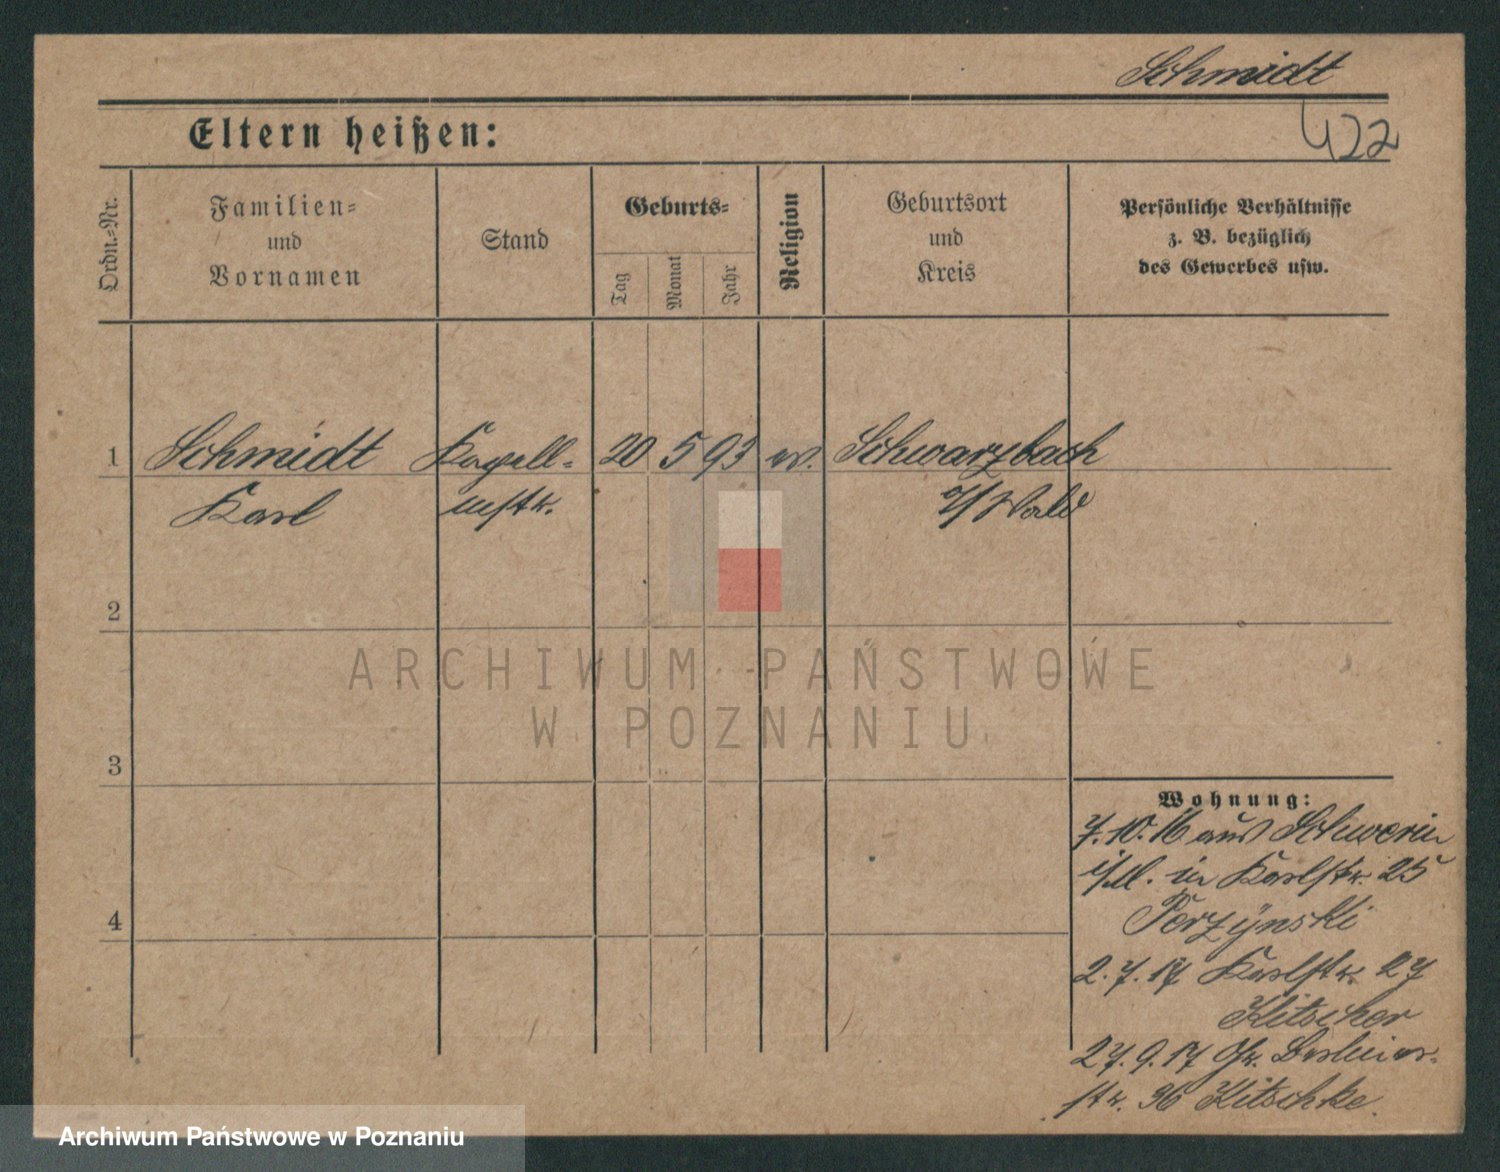 Schmidt
Eltern heißen:
422
Ordn.=Nr.
Familien=
und
Vornamen
Stand
Geburts=
Tag
Monat
Jahr
Religion
Geburtsort
und
Kreis
Persönliche Verhältnisse
z. B. bezüglich
des Gewerbes usw.
1
Schmidt
Kapell=
20
5
93
ev.
Schwarzbach
Karl
mstr.
i/Wald
2
ARCHIWUM PAŃSTWOWE
W POZNANIU
3
Wohnung:
7.10.16 aus Schwerin
i/M. in Karlstr. 25
Porzÿnski
4
2.7.17 Karlstr. 27
Klitscher
27.9.17 Gr. Berliner=
str. 96 Klitschke.
Archiwum Państwowe w Poznaniu